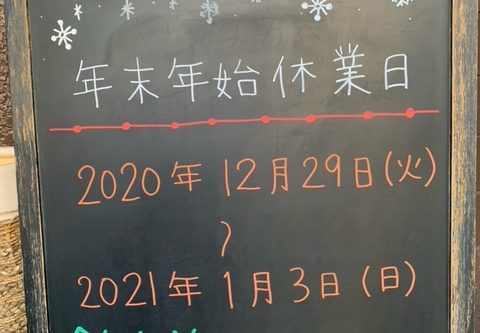 年末年始休業日
2020年 12月29日(火)
〜
2021年 1月3日(日)